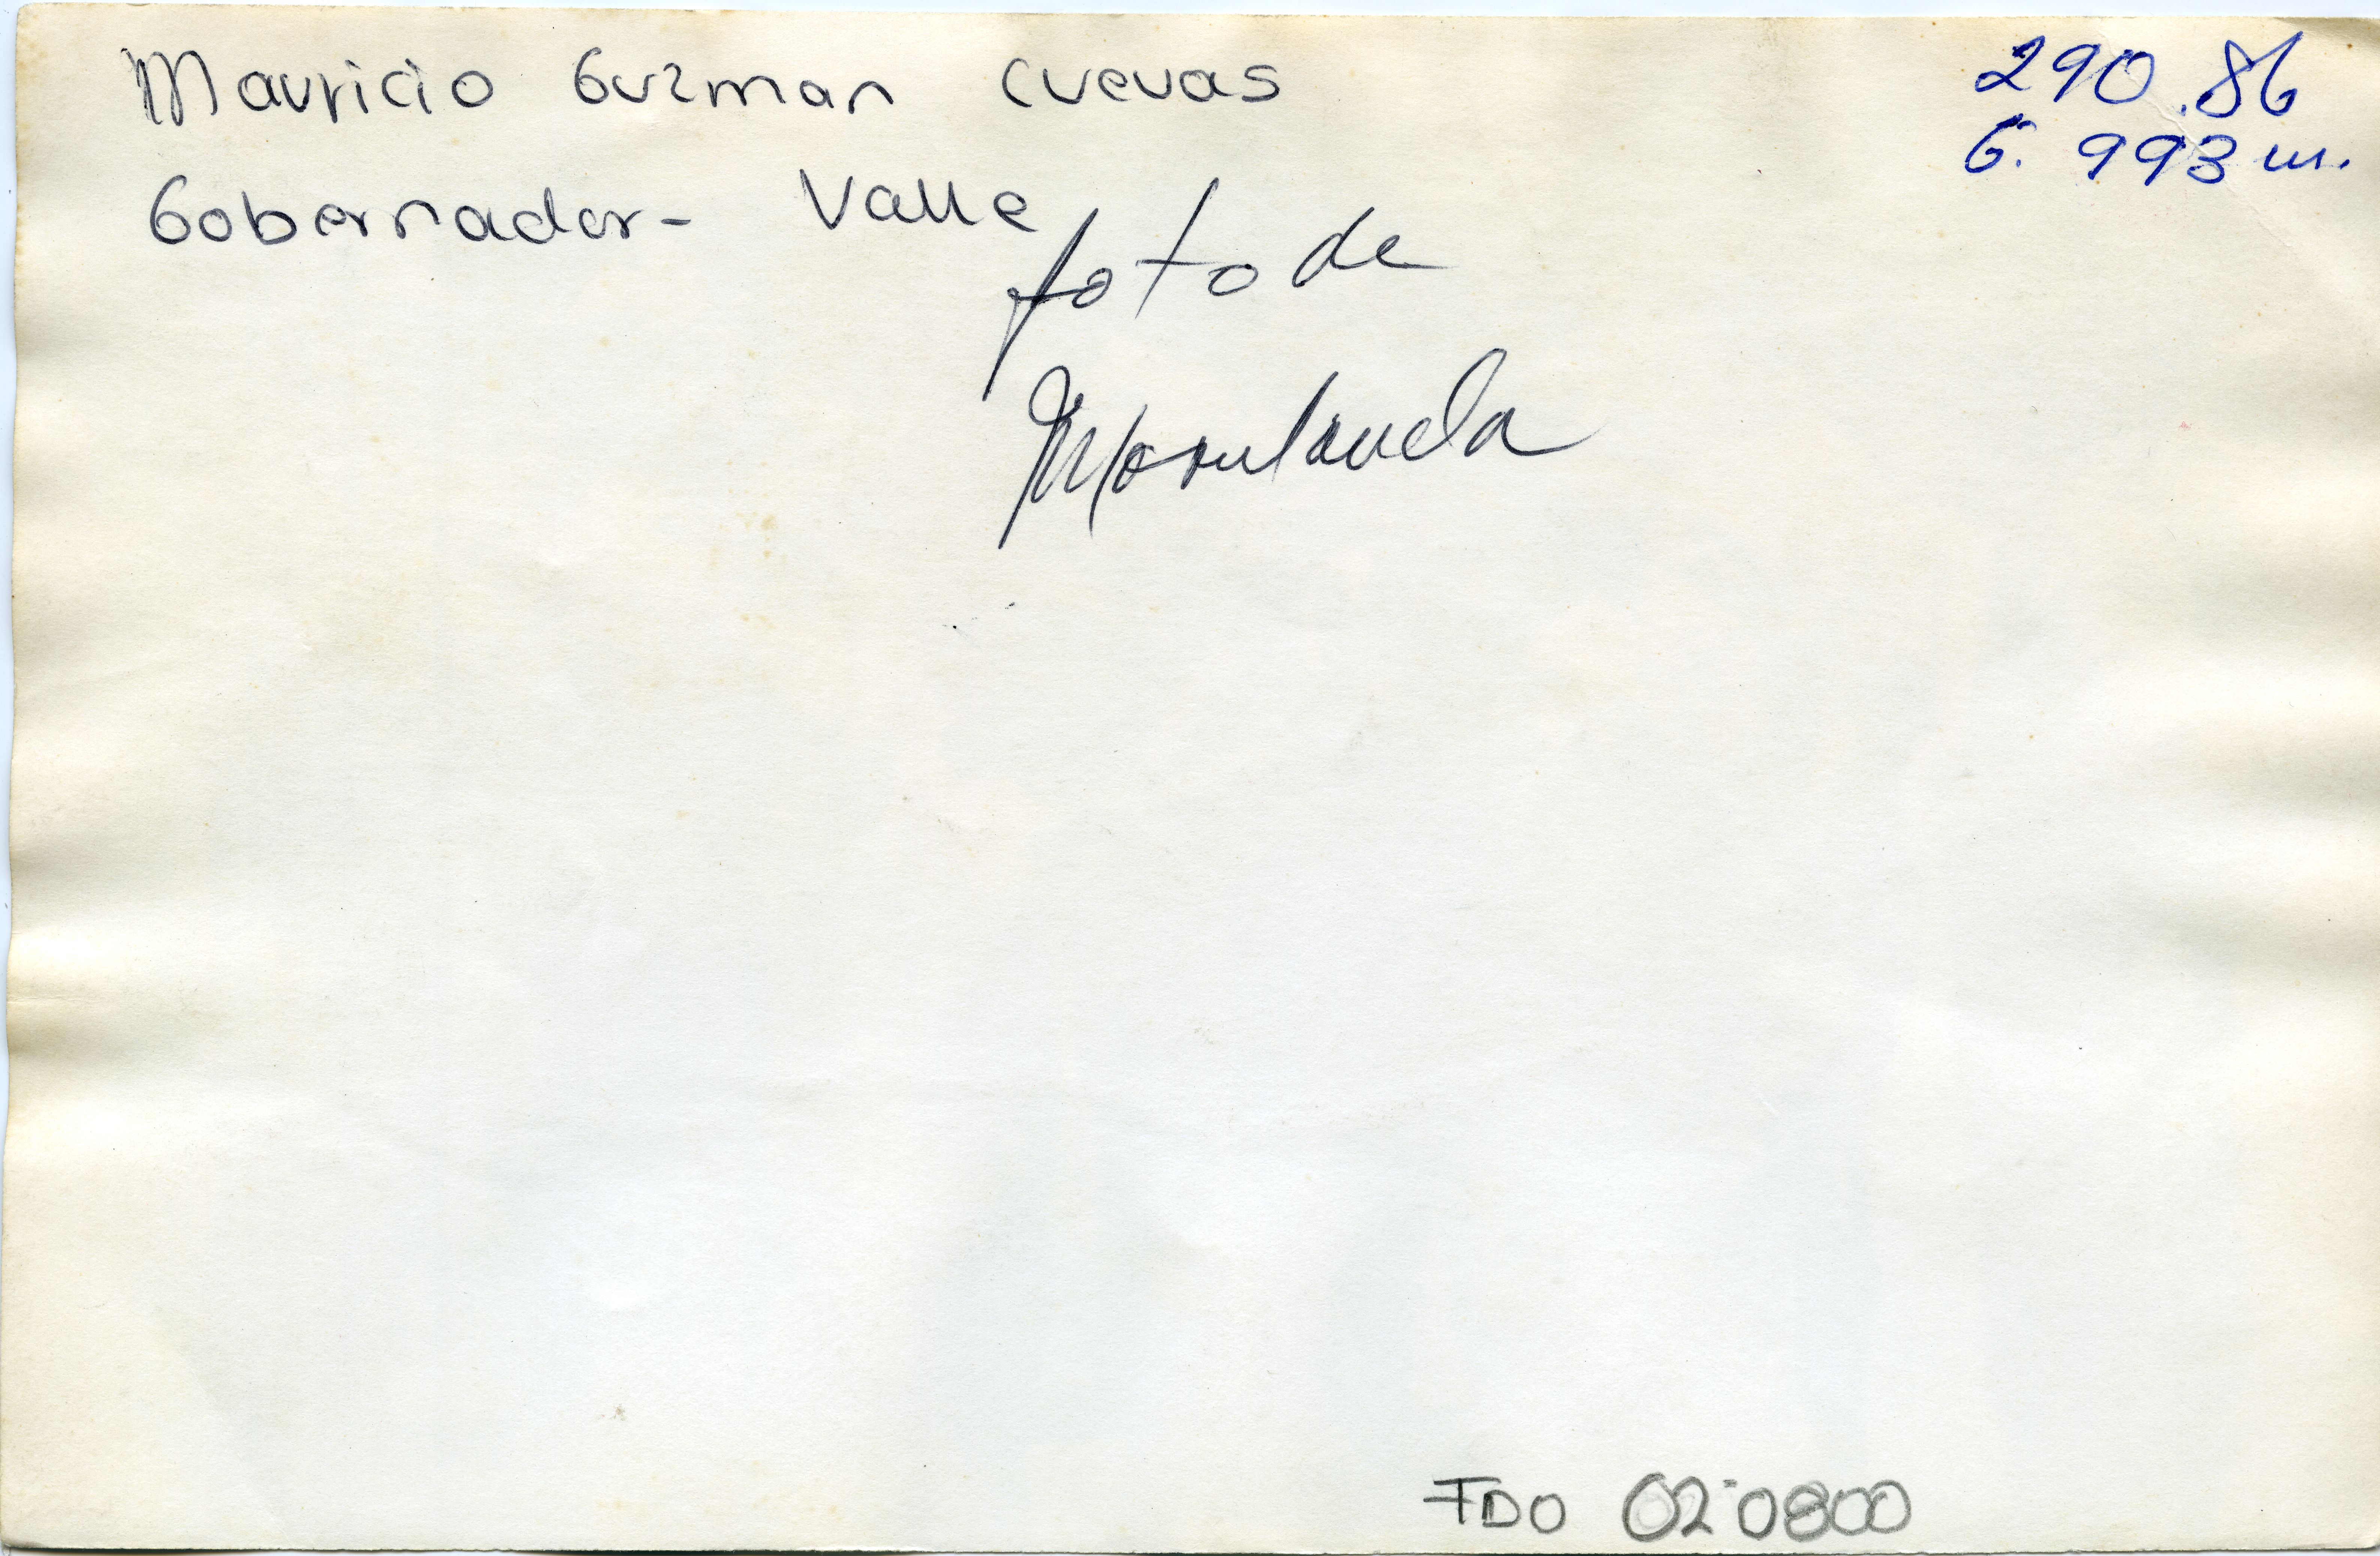 Mauricio Guzman Cuevas
290.86
G. 993 m.
Gobernador - Valle
foto de
Marulanda
FDO 02-0800